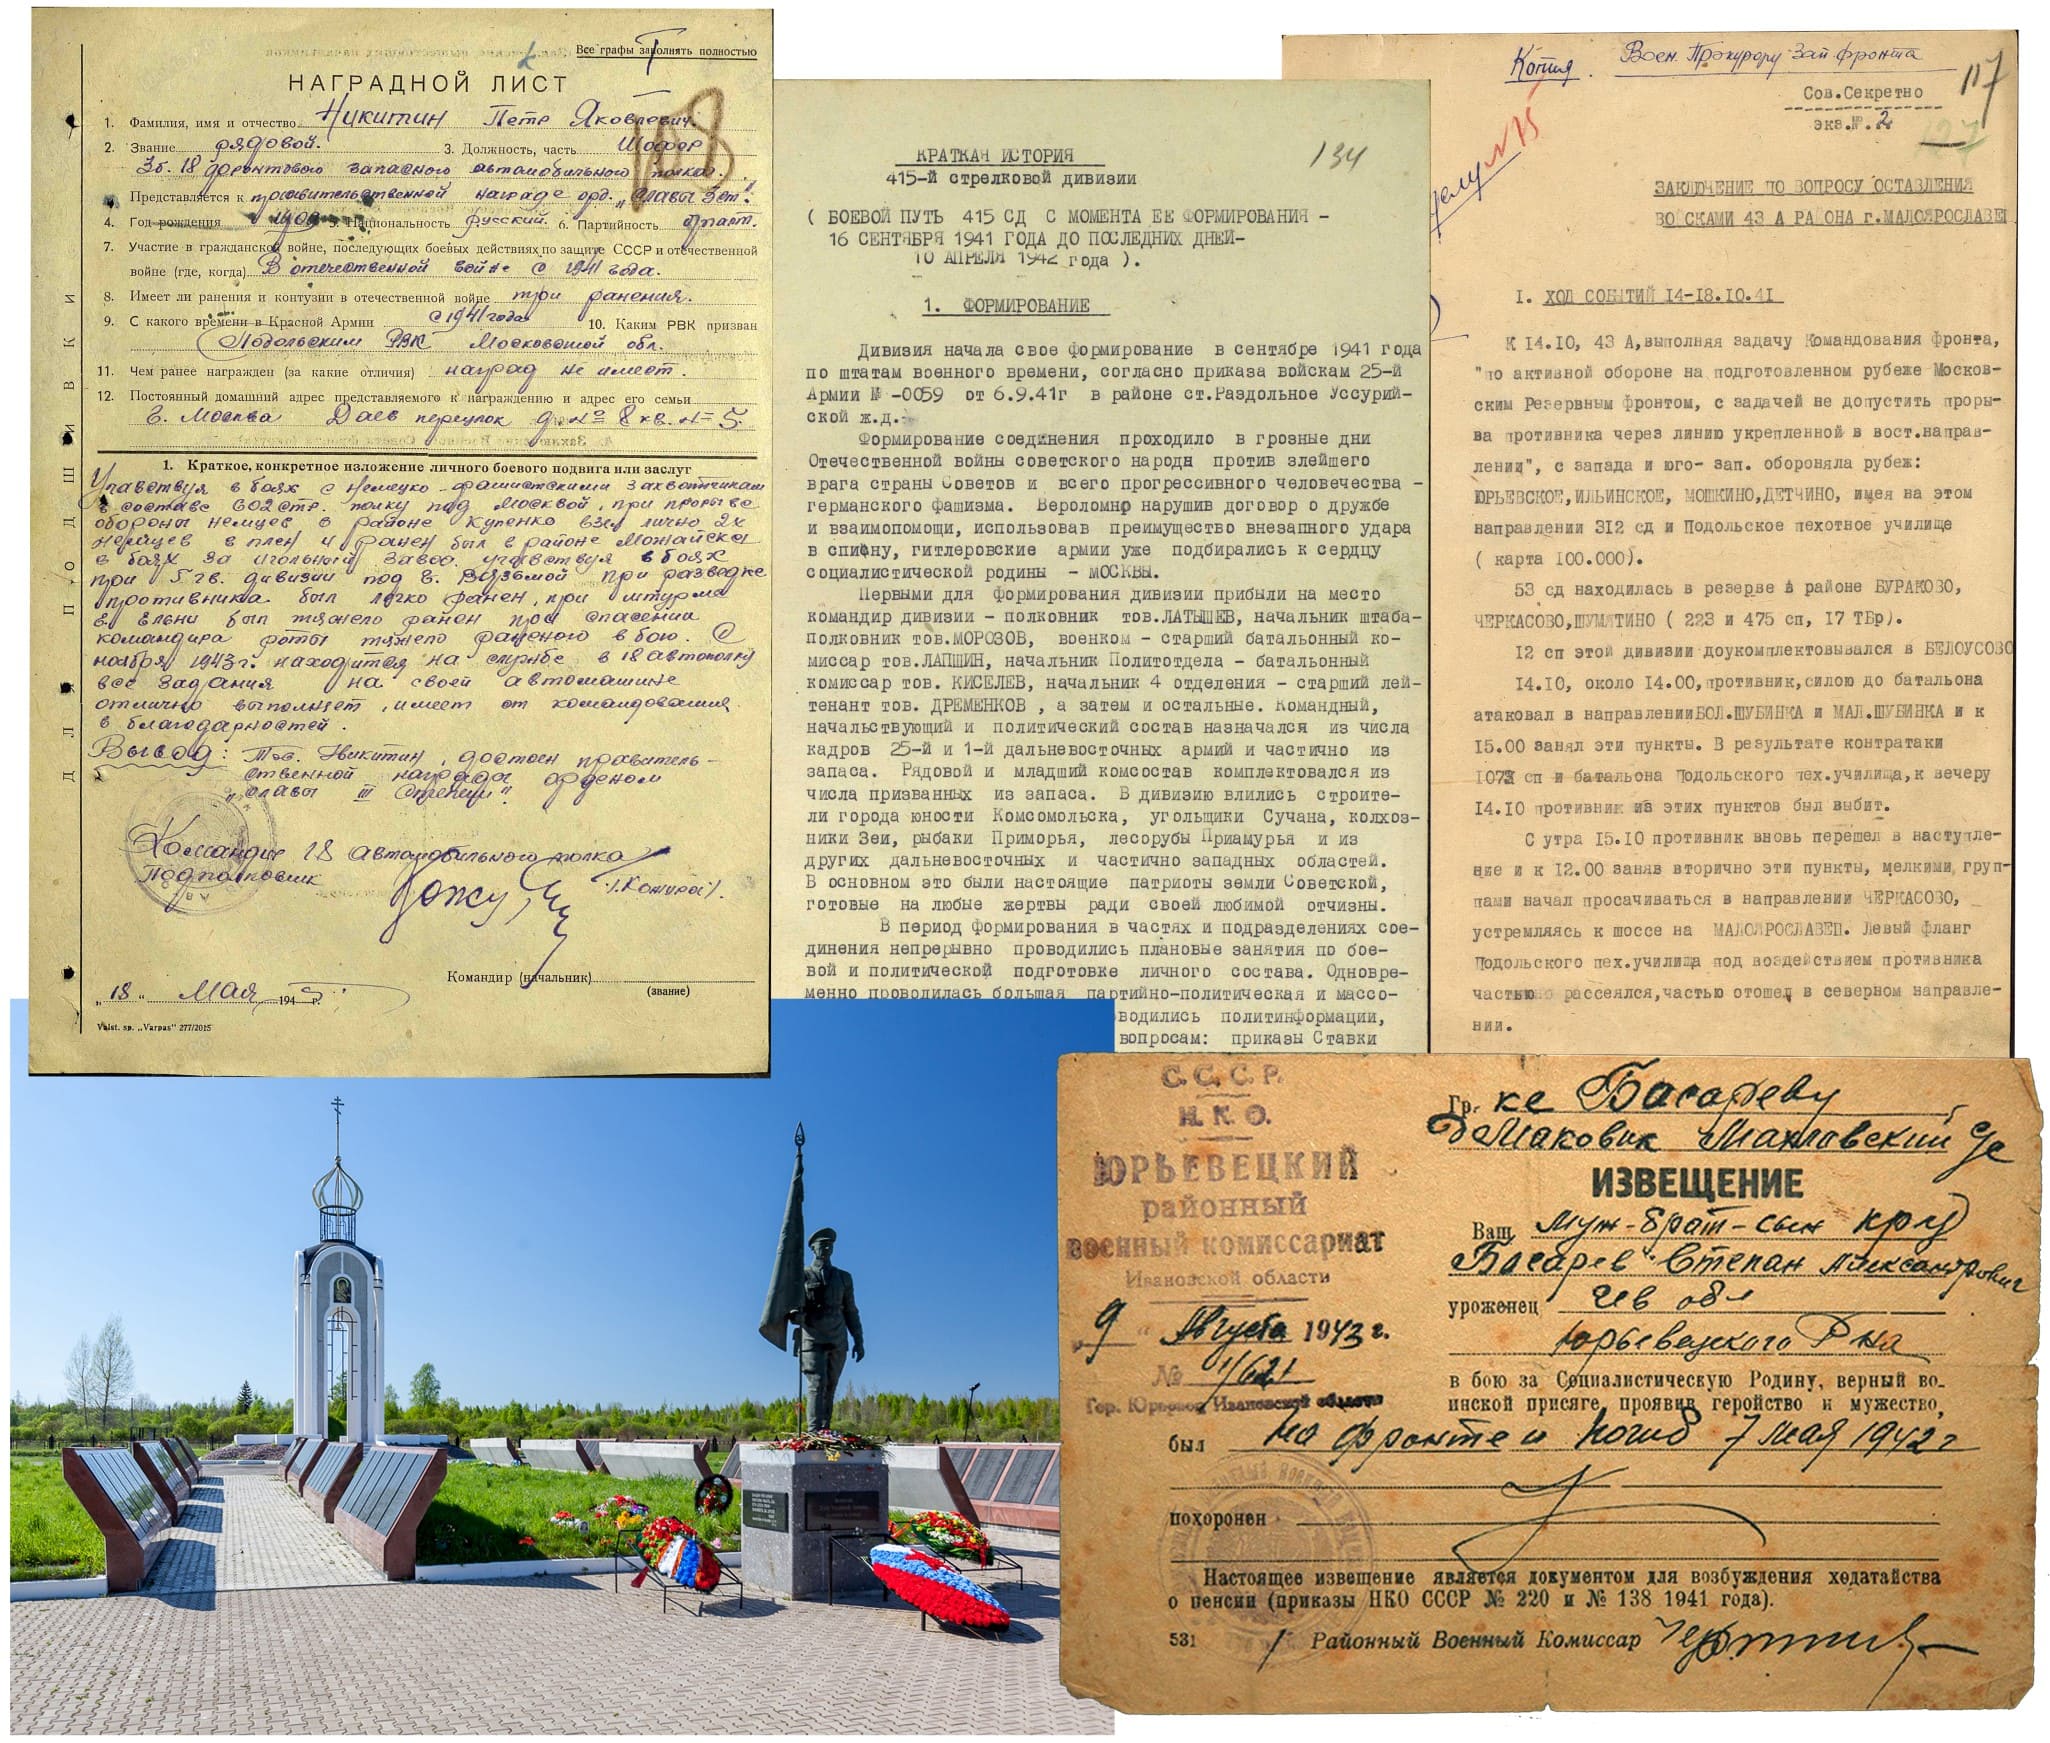 Все графы заполнять полностью
НАГРАДНОЙ ЛИСТ
1. Фамилия, имя и отчество Никитин Петр Яковлевич.
2. Звание рядовой. 3. Должность, часть Шофер
3б. 18 фронтового запасного автомобильного полка.
Представляется к правительственной награде орд. „Славы 3 ст."
4. Год рождения 5. Национальность русский. 6. Партийность
7. Участие в гражданской войне, последующих боевых действиях по защите СССР и отечественной
войне (где, когда) В отечественной войне с 1941 года.
8. Имеет ли ранения и контузии в отечественной войне три ранения.
9. С какого времени в Красной Армии с 1941 года 10. Каким РВК призван
Подольским РВК Московской обл.
11. Чем ранее награжден (за какие отличия) наград не имеет.
12. Постоянный домашний адрес представляемого к награждению и адрес его семьи
г. Москва Даев переулок д. № 8 кв. № 5.
1. Краткое, конкретное изложение личного боевого подвига или заслуг
Участвуя в боях с немецко-фашистскими захватчиками
в составе 602 стр. полку под Москвой, при прорыве
обороны немцев в районе Купенко взял лично 2х
немцев в плен и ранен был в районе Можайска
в боях за игольный завод. участвуя в боях
при 5 гв. дивизии под г. Вязьмой при разведке
противника был легко ранен, при штурме
г. Ельни был тяжело ранен при спасении
командира роты тяжело раненого в бою. С
ноября 1943 г. находится на службе в 18 автополку
все задания на своей автомашине
отлично выполняет, имеет от командования
6 благодарностей.
Вывод: Тов. Никитин, достоен правитель-
ственной награды орденом
„Славы III степени".
Командир 18 автомобильного полка
Подполковник
Командир (начальник)
(звание)
„18" Мая 194 г.
Valst. sp. „Varpas" 277/2015
ДЛЯ ПОДШИВКИ
108
134
КРАТКАЯ ИСТОРИЯ
415-й стрелковой дивизии
( БОЕВОЙ ПУТЬ 415 СД С МОМЕНТА ЕЕ ФОРМИРОВАНИЯ -
16 СЕНТЯБРЯ 1941 ГОДА ДО ПОСЛЕДНИХ ДНЕЙ-
10 АПРЕЛЯ 1942 года ).
1. ФОРМИРОВАНИЕ
Дивизия начала свое формирование в сентябре 1941 года
по штатам военного времени, согласно приказа войскам 25-й
Армии № -0059 от 6.9.41г в районе ст.Раздольное Уссурий-
ской ж.д.-
Формирование соединения проходило в грозные дни
Отечественной войны советского народа против злейшего
врага страны Советов и всего прогрессивного человечества -
германского фашизма. Вероломно нарушив договор о дружбе
и взаимопомощи, использовав преимущество внезапного удара
в спину, гитлеровские армии уже подбирались к сердцу
социалистической родины - МОСКВЫ.
Первыми для формирования дивизии прибыли на место
командир дивизии - полковник тов.ЛАТЫШЕВ, начальник штаба-
полковник тов.МОРОЗОВ, военком - старший батальонный ко-
миссар тов.ЛАПШИН, начальник Политотдела - батальонный
комиссар тов. КИСЕЛЕВ, начальник 4 отделения - старший лей-
тенант тов. ДРЕМЕНКОВ , а затем и остальные. Командный,
начальствующий и политический состав назначался из числа
кадров 25-й и 1-й дальневосточных армий и частично из
запаса. Рядовой и младший комсостав комплектовался из
числа призванных из запаса. В дивизию влились строите-
ли города юности Комсомольска, угольщики Сучана, колхоз-
ники Зеи, рыбаки Приморья, лесорубы Приамурья и из
других дальневосточных и частично западных областей.
В основном это были настоящие патриоты земли Советской,
готовые на любые жертвы ради своей любимой отчизны.
В период формирования в частях и подразделениях сое-
динения непрерывно проводились плановые занятия по бое-
вой и политической подготовке личного состава. Одновре-
менно проводилась большая партийно-политическая и массо-
водились политинформации,
вопросам: приказы Ставки
Копия. Воен. Прокурору Зап фронта
117
Сов.Секретно
экз.№.2
127
№15
ЗАКЛЮЧЕНИЕ ПО ВОПРОСУ ОСТАВЛЕНИЯ
ВОЙСКАМИ 43 А РАЙОНА г.МАЛОЯРОСЛАВЕЦ
I. ХОД СОБЫТИЙ 14-18.10.41
К 14.10, 43 А,выполняя задачу Командования фронта,
"по активной обороне на подготовленном рубеже Москов-
ским Резервным фронтом, с задачей не допустить проры-
ва противника через линию укрепленной в вост.направ-
лении", с запада и юго- зап. обороняла рубеж:
ЮРЬЕВСКОЕ,ИЛЬИНСКОЕ, МОШКИНО,ДЕТЧИНО, имея на этом
направлении 312 сд и Подольское пехотное училище
( карта 100.000).
53 сд находилась в резерве в районе БУРАКОВО,
ЧЕРКАСОВО,ШУМЯТИНО ( 223 и 475 сп, 17 ТБр).
12 сп этой дивизии доукомплектовывался в БЕЛОУСОВО
14.10, около 14.00,противник,силою до батальона
атаковал в направлении БОЛ.ШУБИНКА и МАЛ.ШУБИНКА и к
15.00 занял эти пункты. В результате контратаки
1073 сп и батальона Подольского пех.училища,к вечеру
14.10 противник из этих пунктов был выбит.
С утра 15.10 противник вновь перешел в наступле-
ние и к 12.00 заняв вторично эти пункты, мелкими груп-
пами начал просачиваться в направлении ЧЕРКАСОВО,
устремляясь к шоссе на МАЛОЯРОСЛАВЕЦ. Левый фланг
Подольского пех.училища под воздействием противника
частью рассеялся,частью отошел в северном направле-
нии.
С.С.С.Р.
Н.К.О.
ЮРЬЕВЕЦКИЙ
районный
военный комиссариат
Ивановской области
„9" Августа 1943 г.
№ 11/621
Гор. Юрьевец, Ивановской области
Гр. ке Басареву
ИЗВЕЩЕНИЕ
Ваш муж-брат-сын кр-ц
Басарев Степан Александрович
уроженец Ив обл
Юрьевецкого р-на
в бою за Социалистическую Родину, верный во-
инской присяге, проявив геройство и мужество,
был на фронте и погиб 7 мая 1942 г
похоронен
Настоящее извещение является документом для возбуждения ходатайства
о пенсии (приказы НКО СССР № 220 и № 138 1941 года).
531 Районный Военный Комиссар